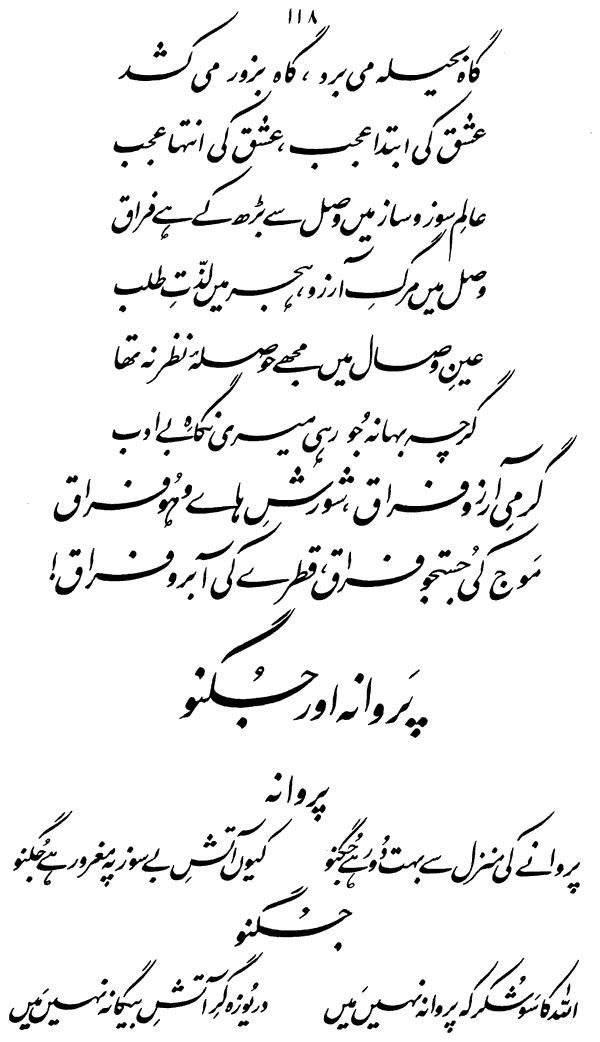 ۱۱۸
گاہ بحیلہ می برد ، گاہ بزور می کشد
عشق کی ابتدا عجب ، عشق کی انتہا عجب
عالمِ سوز و ساز میں وصل سے بڑھ کے ہے فراق
وصل میں مرگِ آرزو ، ہجر میں لذّتِ طلب
عینِ وصال میں مجھے حوصلۂ نظر نہ تھا
گرچہ بہانہ جُو رہی میری نگاہِ بے ادب
گرمیِ آرزو فراق ، شورشِ ہاے و ہُو فراق
مَوج کی جُستجو فراق ، قطرے کی آبرو فراق !
پَروانہ اور جُگنو
پروانہ
پروانے کی منزل سے بہت دُور ہے جُگنو کیوں آتشِ بے سوز پہ مغرور ہے جُگنو
جُگنو
اللہ کا سَو شُکر کہ پروانہ نہیں مَیں دریوزہ گرِ آتشِ بیگانہ نہیں مَیں